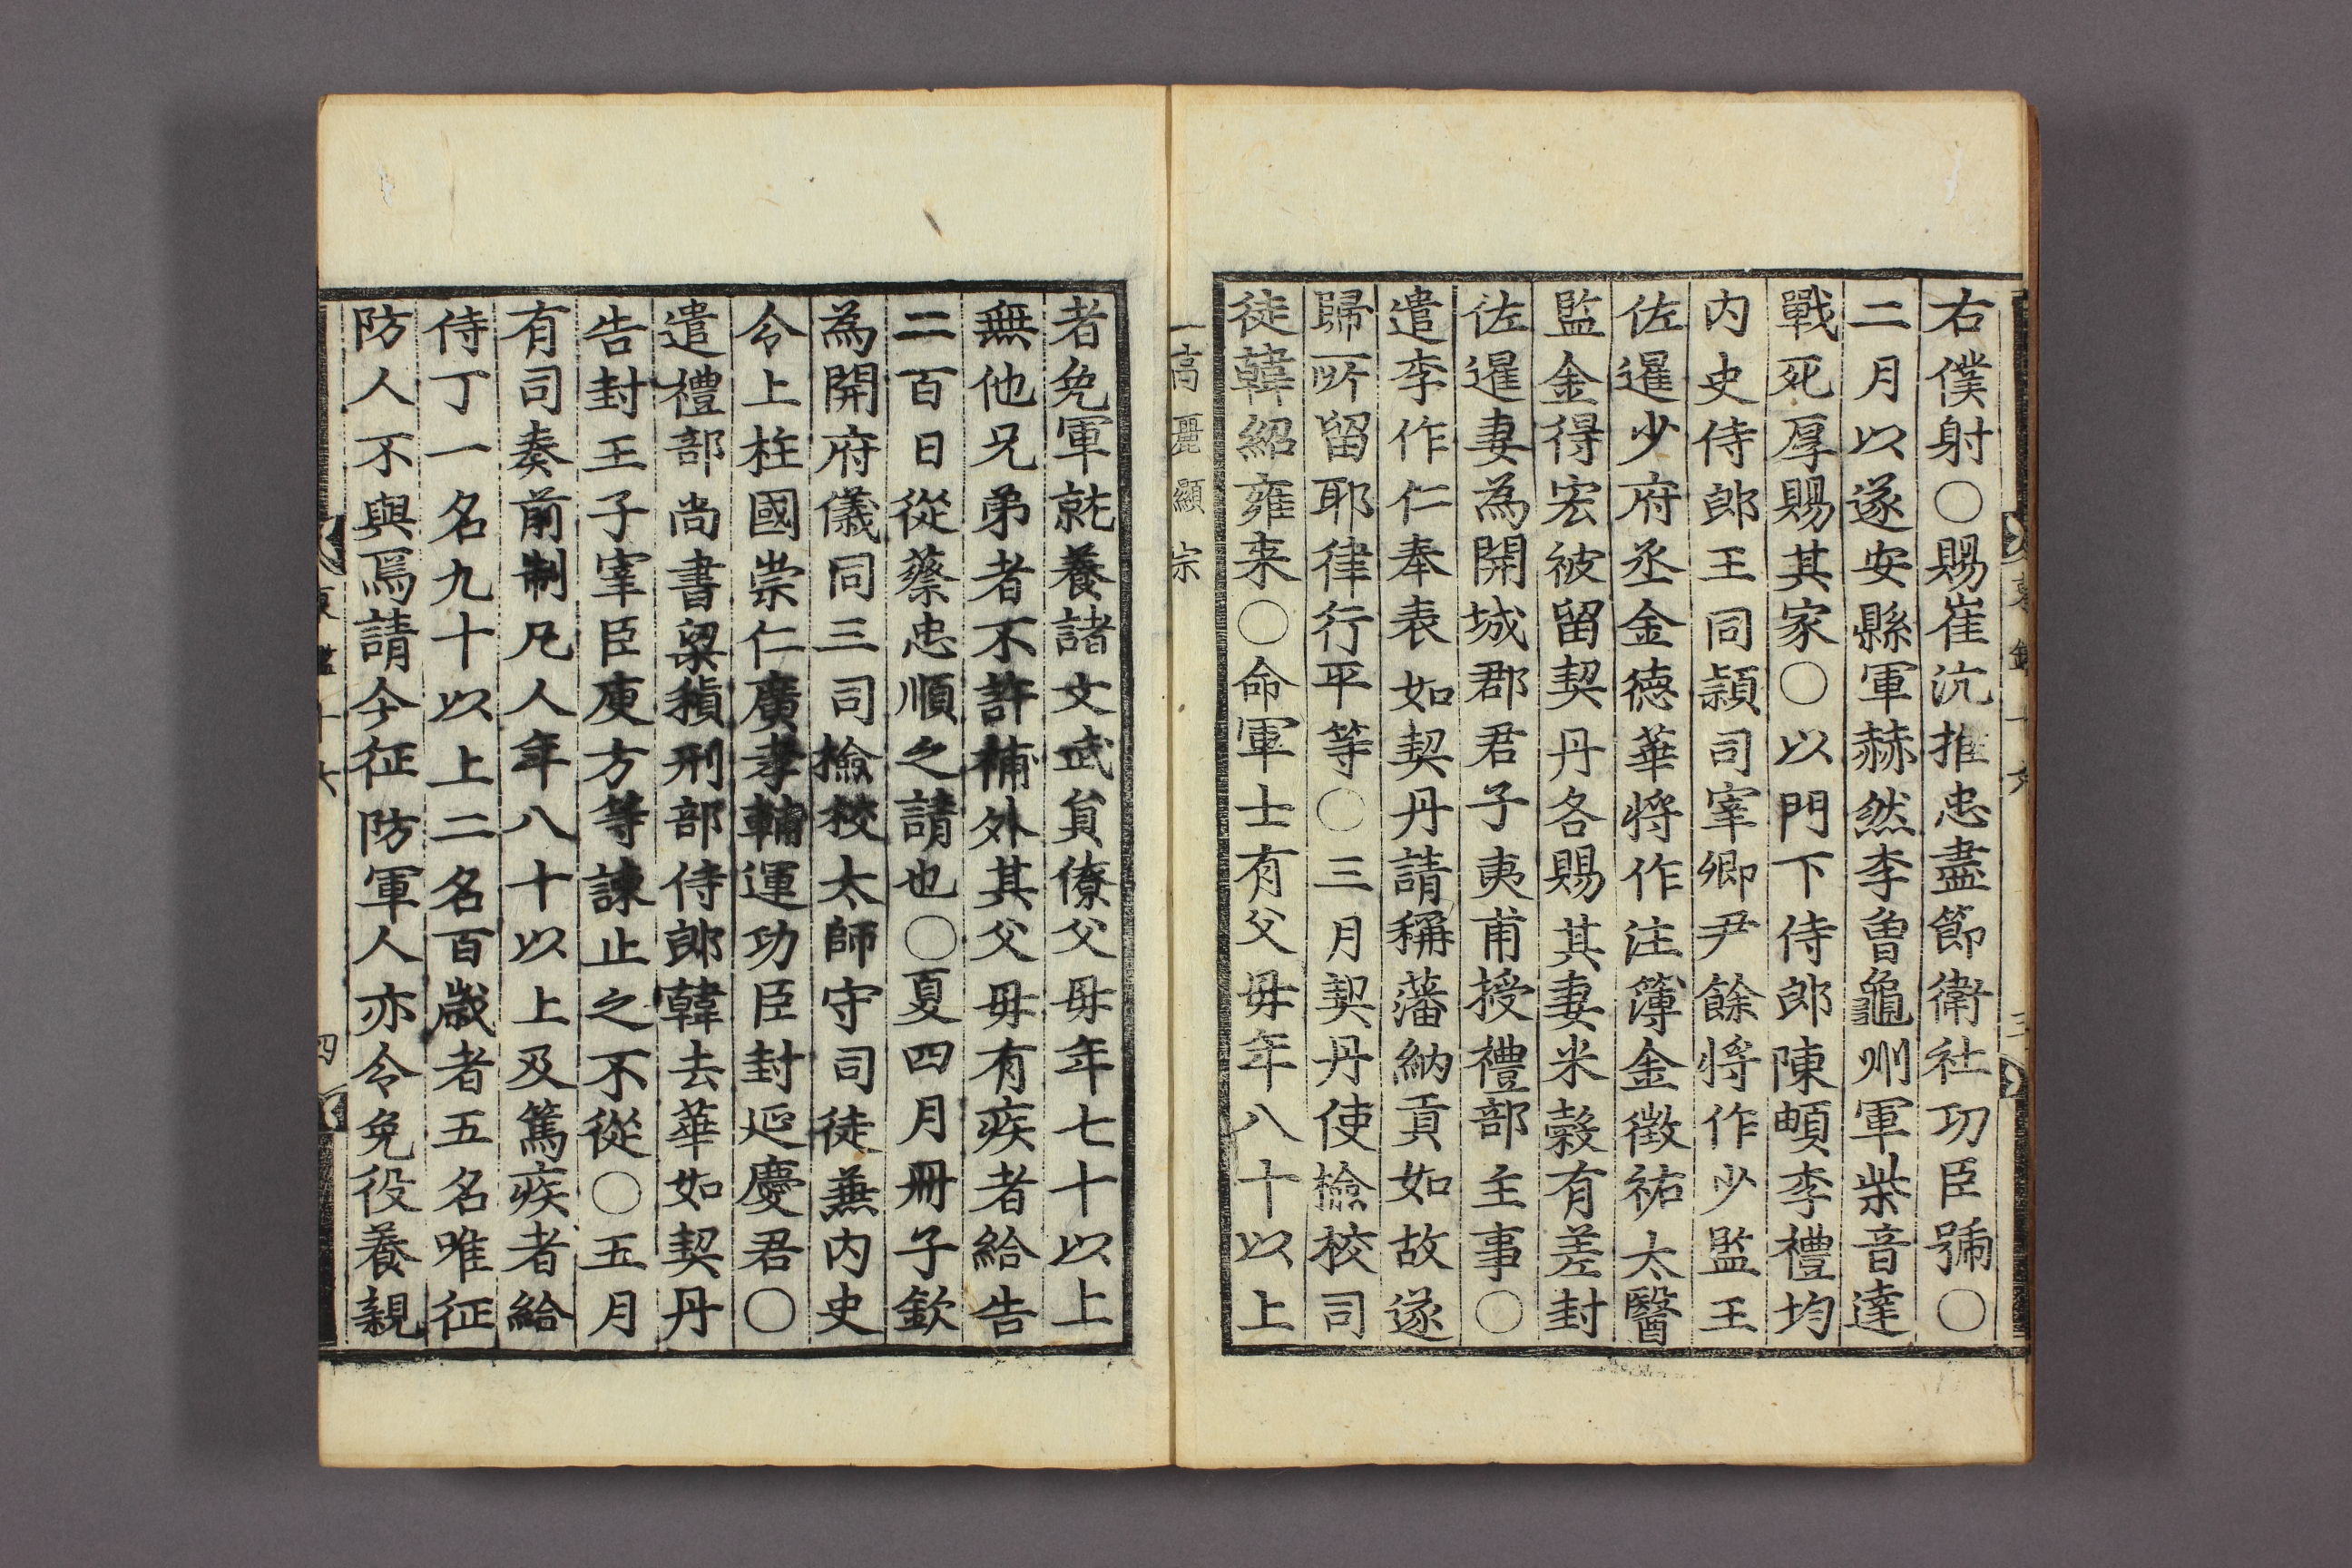 右僕射○賜崔沆推忠盡節衛社功臣號○
二月以遂安縣軍赫然李曾龜州軍柴音達
戰死厚賜其家○以門下侍郎陳頔李禮均
内史侍郎王同穎司宰卿尹餘將作少監王
佐暹少府丞金德華將作注簿金徵祐太醫
監金得宏被留契丹各賜其妻米穀有差封
佐暹妻為開城郡君子夷甫授禮部主事○
遣李作仁奉表如契丹請稱藩納貢如故遂
歸所留耶律行平等○三月契丹使檢校司
徒韓紹雍来○命軍士有父毋年八十以上
高麗顯宗
者免軍就養諸文武負僚父毋年七十以上
無他兄弟者不許補外其父毋有疾者給告
二百日從蔡忠順之請也○夏四月冊子欽
為開府儀同三司檢校太師守司徒兼内史
令上柱國崇仁廣孝輔運功臣封延慶君○
遣禮部尚書梁稹刑部侍郎韓去華如契丹
告封王子宰臣庾方等諫止之不從○五月
有司奏前制凡人年八十以上及篤疾者給
侍丁一名九十以上二名百歲者五名唯征
防人不與焉請今征防軍人亦令免役養親
四